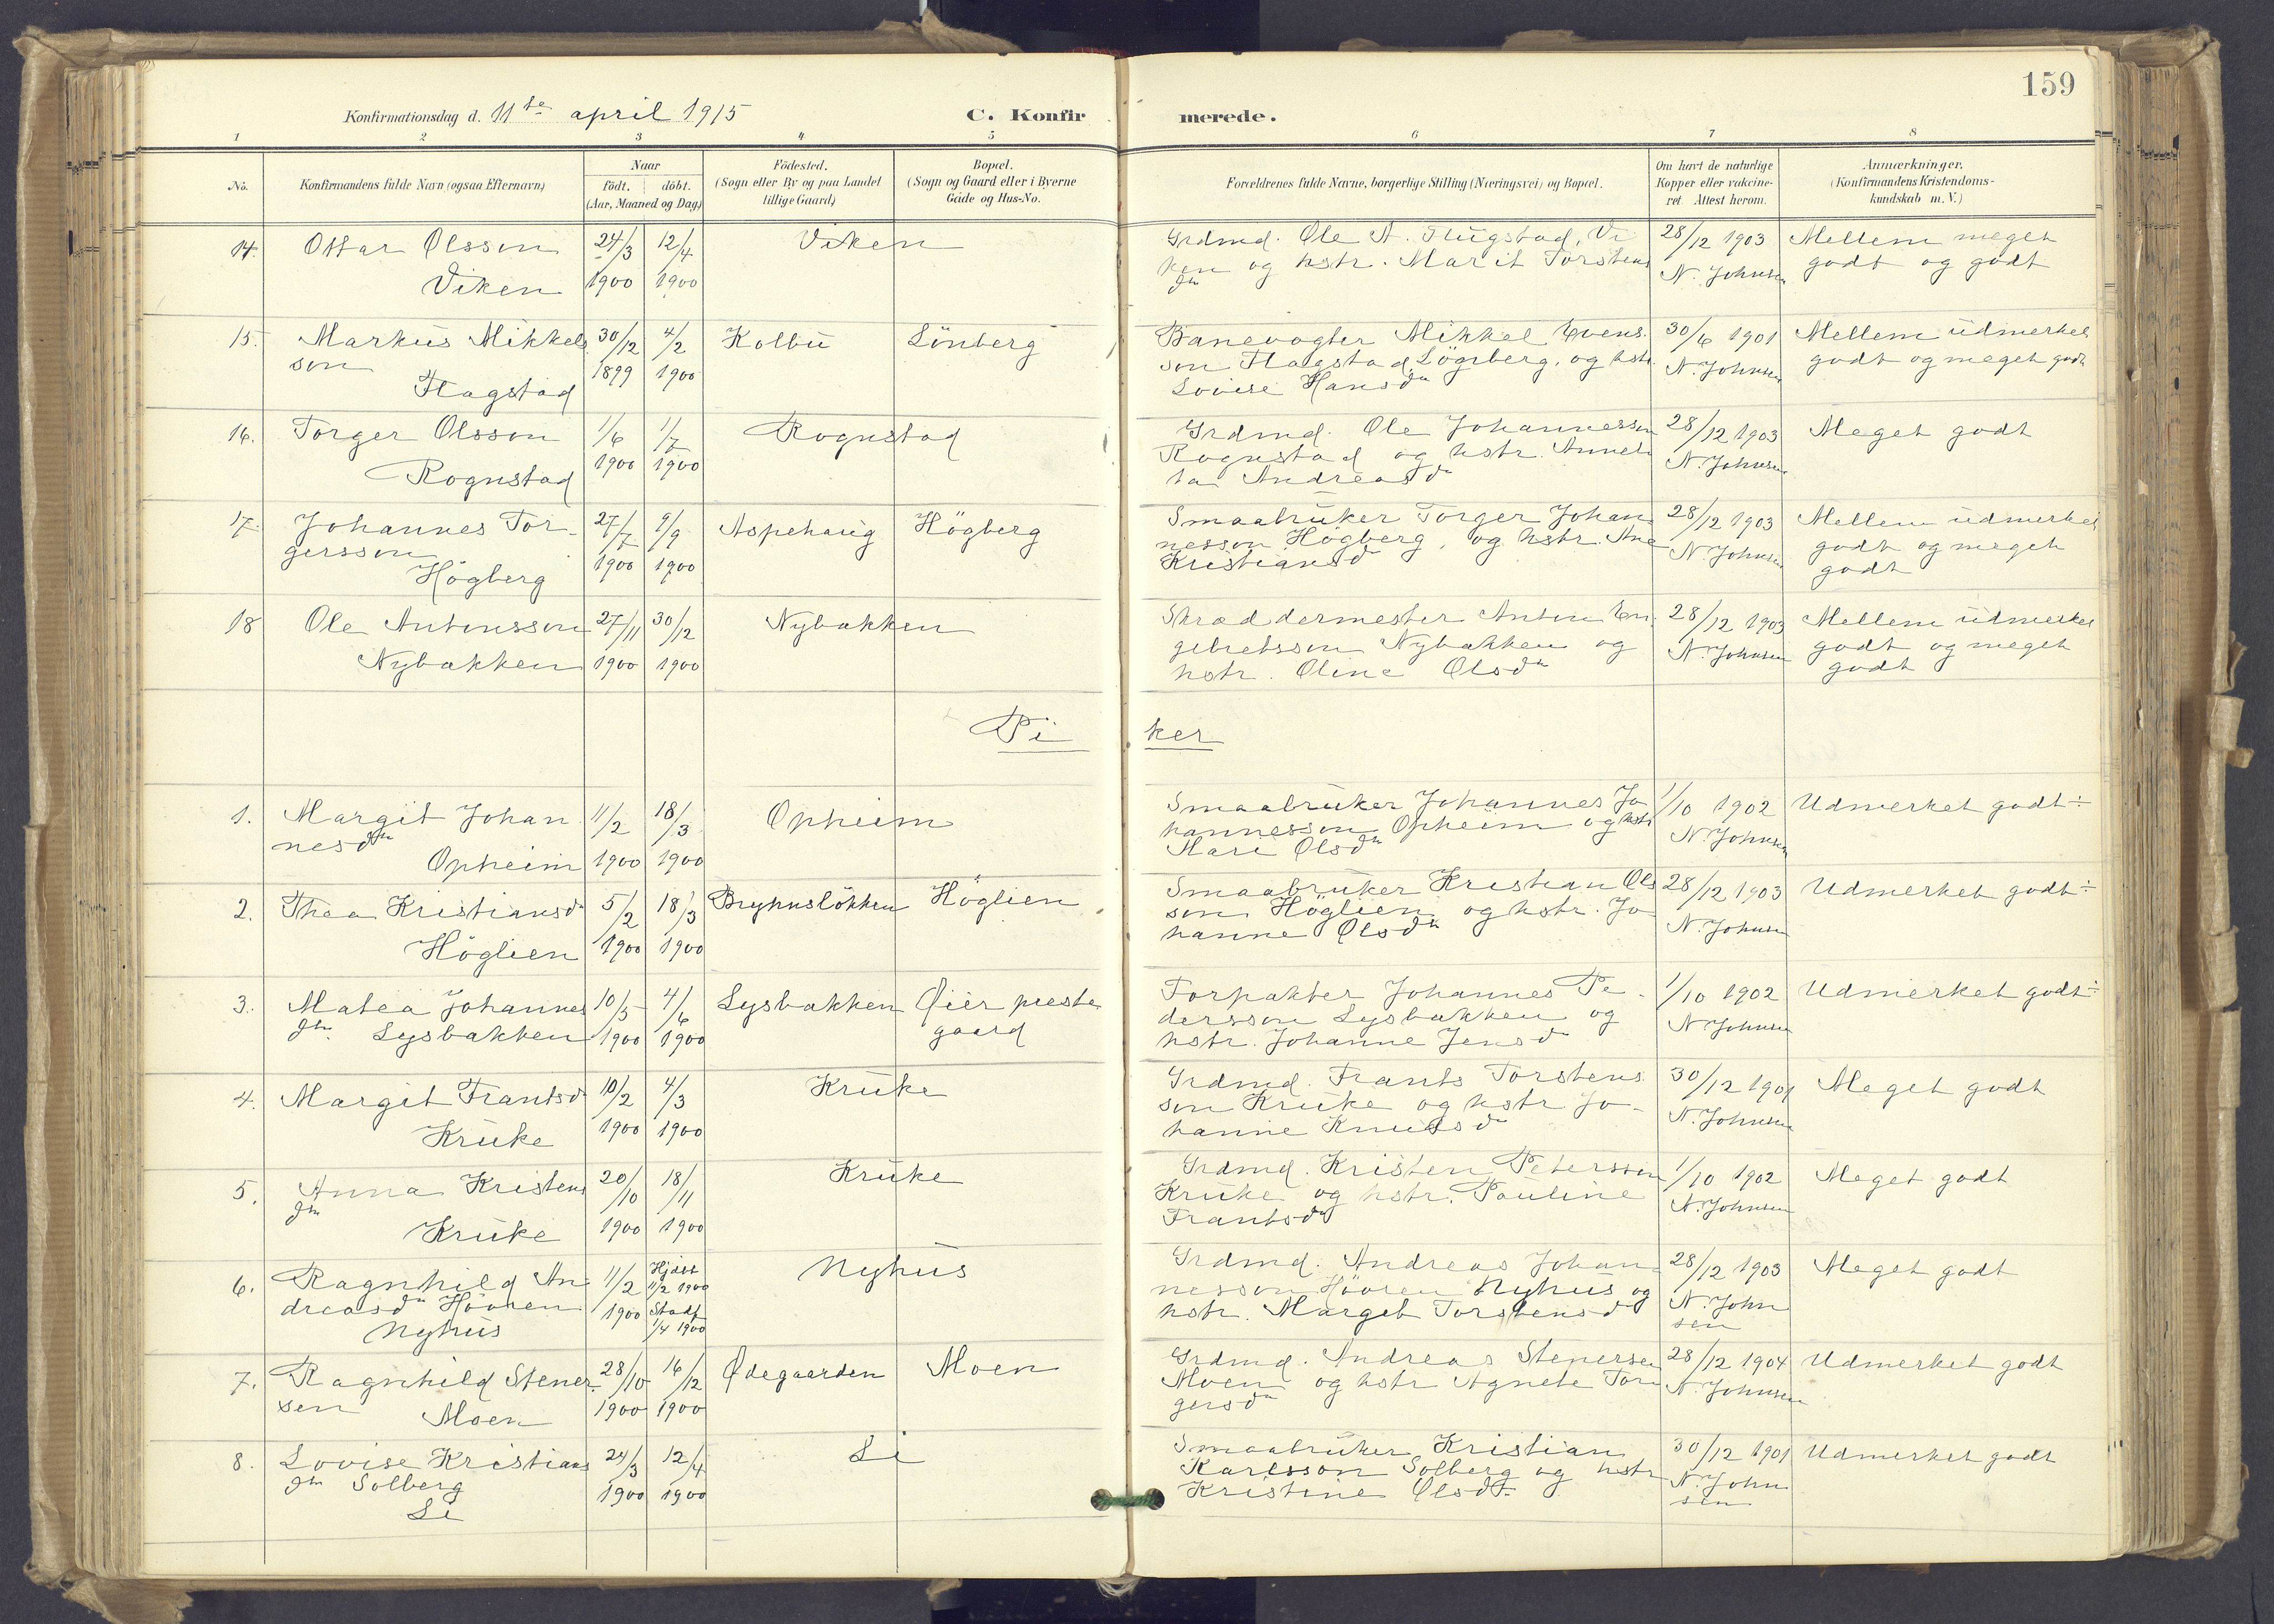 159
Konfirmationsdag d. 11te april 1915
C. Konfirmerede.
1 2 3 4 5 6 7 8
No.
Konfirmandens fulde Navn (ogsaa Efternavn)
Naar
født. døbt.
(Aar, Maaned og Dag)
Födested.
(Sogn eller By og paa Landet
tillige Gaard)
Bopæl.
(Sogn og Gaard eller i Byerne
Gade og Hus-No.
Forældrenes fulde Navne, borgerlige Stilling (Næringsvei) og Bopæl.
Om havt de naturlige
Kopper eller vakcine-
ret Attest herom.
Anmærkninger.
(Konfirmandens Kristendoms-
kundskab m. V.)
14. Ottar Olsson
Viken
24/3 1900
12/4 1900
Viken
Grdmd. Ole A. Flugstad, Vi
ken og hstr. Marit Torstens
dtr
28/12 1903
N. Johnsen
Mellem meget
godt og godt
15. Markus Mikkels
son
Flagstad
30/12 1899
4/2 1900
Kolbu
Lönberg
Banevogter Mikkel Evens
son Flagstad, Lögrberg, og hstr.
Lovise Hansdtr
30/6 1901
N. Johnsen
Mellem udmerket
godt og meget godt
16. Torger Olsson
Rognstad
1/6 1900
1/7 1900
Rognstad
Grdmd. Ole Johannesson
Rognstad og hstr. Annet
ta Andreasdtr
28/12 1903
N. Johnsen
Meget godt
17. Johannes Tor-
gersson
Högberg
27/7 1900
9/9 1900
Aspehaug
Högberg
Smaabruker Torger Johan
nesson Högberg, og hstr. Ane
Kristiansd
28/12 1903
N. Johnsen
Mellem udmerket
godt og meget
godt
18 Ole Antonsson
Nybakken
27/11 1900
30/12 1900
Nybakken
Skræddermester Anton En
gebretsson Nybakken og
hstr. Oline Olsdtr
28/12 1903
N. Johnsen
Mellem udmerket
godt og meget
godt
Piker
1. Margit Johan
nesdtr
Opheim
11/2 1900
18/3 1900
Opheim
Smaabruker Johannes Jo
hannesson Opheim og hstr
Mari Olsdtr
1/10 1902
N. Johnsen
Udmerket godt÷
2. Thea Kristiansd
Höglien
5/2 1900
18/3 1900
Bryhnslökken
Höglien
Smaabruker Kristian Ols
son Höglien og hstr. Jo
hanne Olsdtr
28/12 1903
N. Johnsen
Udmerket godt÷
3. Matea Johannes
dtr. Lysbakken
10/5 1900
4/6 1900
Lysbakken
Øier preste
gaard
Forpakter Johannes Pe-
dersson Lysbakken og
hstr. Johanne Jensd
1/10 1902
N. Johnsen
Udmerket godt÷
4. Margit Frantsd
Kruke
10/2 1900
4/3 1900
Kruke
Grdmd. Frants Torstens
son Kruke og hstr. Jo-
hanne Knudsd
30/12 1901
N. Johnsen
Meget godt
5. Anna Kristens
dtr
Kruke
20/10 1900
18/11 1900
Kruke
Grdmd. Kristen Petersson
Kruke og hstr. Pauline
Frantsdtr
1/10 1902
N. Johnsen
Meget godt
6. Ragnhild An
dreasdtr Hövren
Nyhus
11/2 1900
Hjdbt
11/2 1900
Stadf
1/4 1900
Nyhus
Grdmd. Andreas Johan
nesson Hövren Nyhus og
hstr. Margit Torstensd
28/12 1903
N. John
sen
Meget godt
7. Ragnhild Stener-
sen
Moen
28/10 1900
16/12 1900
Ødegaarden
Moen
Grdmd. Andreas Stenersen
Moen og hstr Agnete Tor
gersdtr
28/12 1904
N. Johnsen
Udmerket godt
8. Lovise Kristians
dtr Solberg
Li
24/3 1900
12/4 1900
Li
Smaabruker Kristian
Karlsson Solberg og hstr
Kristine Olsdt.
30/12 1901
N. John
sen
Udmerket godt